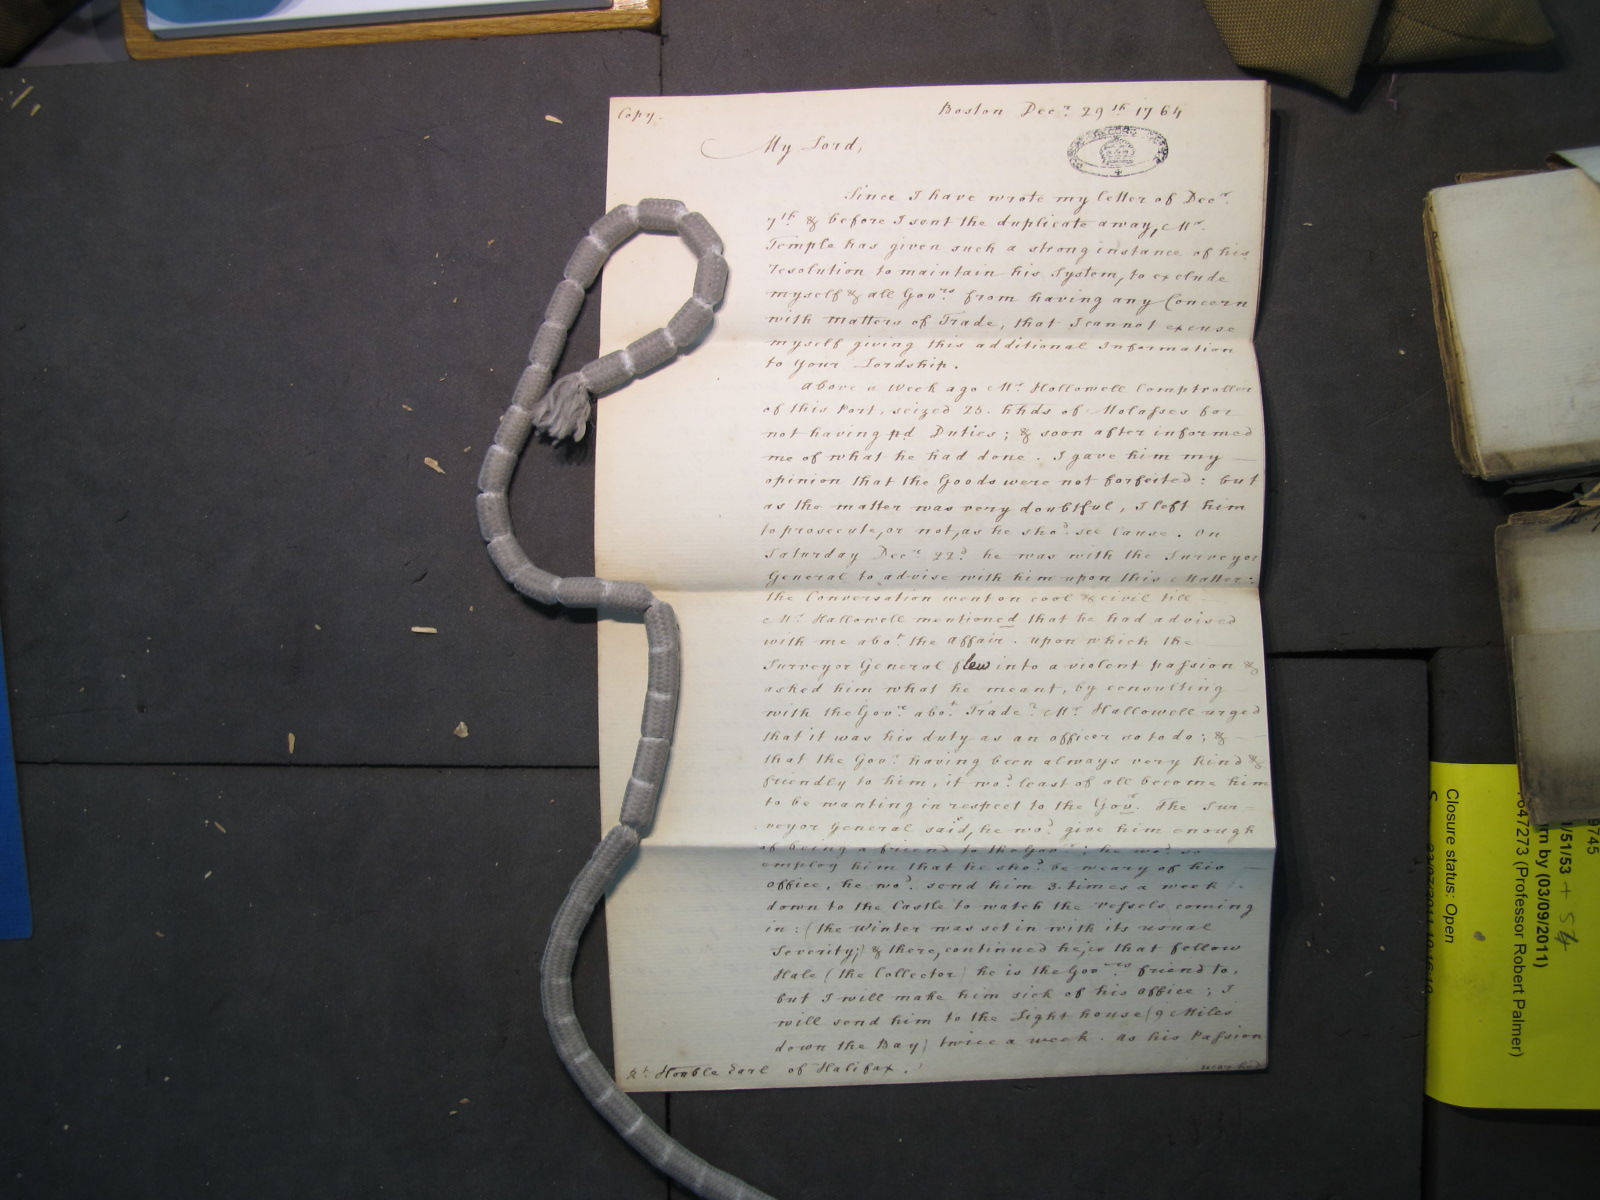 Copy.
Boston Decr. 29th 1764
My Lord,
Since I have wrote my letter of Decr.
7th & before I sent the duplicate away, Mr.
Temple has given such a strong instance of his
resolution to maintain his System, to exclude
myself & all Govrs. from having any Concern
with matters of Trade, that I cannot excuse
myself giving this additional Information
to your Lordship.
above a Week ago Mr. Hallowell Comptroller
of this Port, seized 25. hhds of Molasses for
not having pd Duties; & soon after informed
me of what he had done. I gave him my
opinion that the Goods were not forfeited: but
as the matter was very doubtful, I left him
to prosecute, or not, as he shod. see Cause. On
Saturday Decr. 22d. he was with the Surveyor
General to advise with him upon this Matter:
the Conversation went on cool & civil till
Mr. Hallowell mentioned that he had advised
with me abot. the affair. upon which the
Surveyor General flew into a violent passion &
asked him what he meant, by consulting
with the Govr. abot. Trade? Mr. Hallowell urged
that it was his duty as an officer so to do; &
that the Govr. having been always very kind &
friendly to him, it wod. least of all become him
to be wanting in respect to the Govr. The Sur-
veyor General said, he wod. give him enough
of being a friend to the Govr.; he wod. so
employ him that he shod. be weary of his
Office, he wod. send him 3 times a week
down to the Castle to watch the vessels coming
in: (the Winter was set in with its usual
Severity;) & there, continued he, is that fellow
Hale (the Collector) he is the Govrs. friend to,
but I will make him sick of his office; I
will send him to the Light house (9 Miles
down the Bay) twice a week. As his Passion
Rt. Honble Earl of Halifax.
9745
1/51/53 + 54
rn by (03/09/2011)
647273 (Professor Robert Palmer)
Closure status: Open